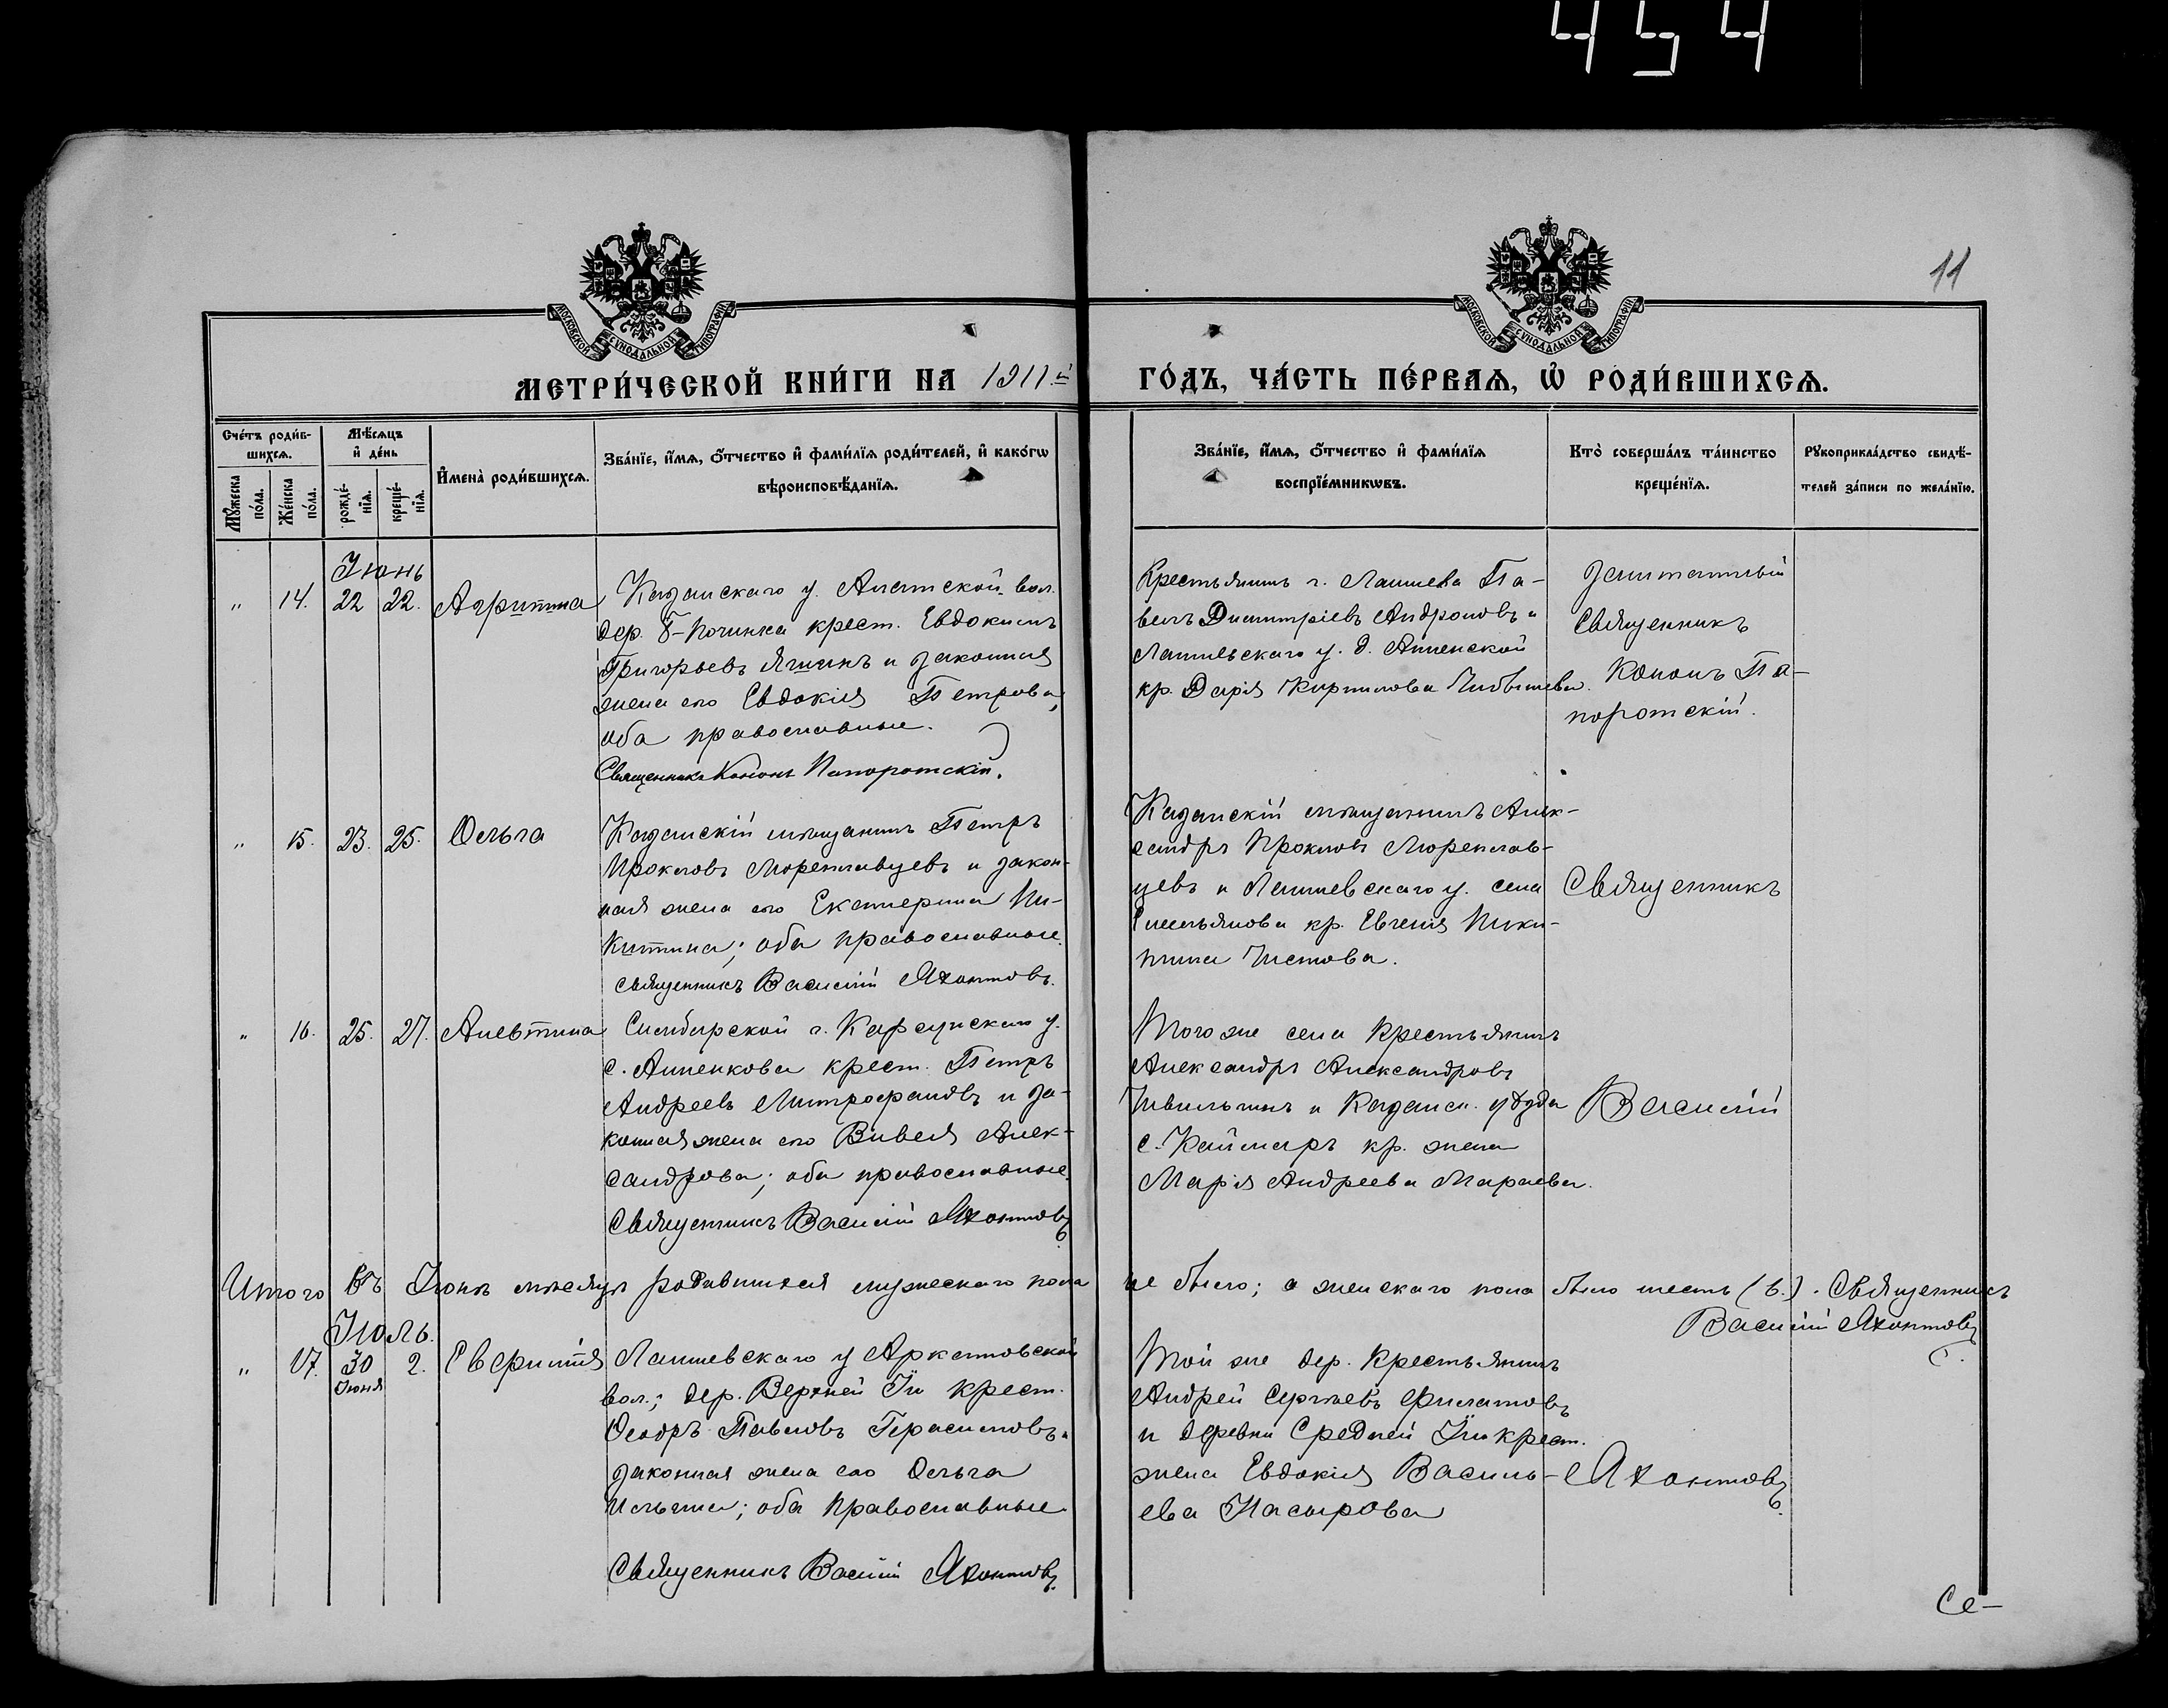 454
11
МОСКОВСКОЙ СУНОДАЛЬНОЙ ТИПОГРАФІИ
МОСКОВСКОЙ СУНОДАЛЬНОЙ ТИПОГРАФІИ
МЕТРИ́ЧЕСКОЙ КНИ́ГИ НА 1911-й
ГО́ДЪ, ЧА́СТЬ ПЕ́РВАѦ, Ѡ҆ РОДИ́ВШИХСѦ.
Сче́тъ роди́в-
шихсѧ.
Мꙋ́жеска по́ла.
Же́нска по́ла.
Мѣ́сѧцъ
и҆ де́нь
рожде́-
нїѧ.
креще́-
нїѧ.
И҆мена̀ роди́вшихсѧ.
Зва́нїе, и҆́мѧ, ѻ҆́тчество и҆ фами́лїѧ роди́телей, и҆ како́гѡ
вѣроисповѣ́данїѧ.
Зва́нїе, и҆́мѧ, ѻ҆́тчество и҆ фами́лїѧ
воспрїе́мникѡвъ.
Кто̀ соверша́лъ та́инство
креще́нїѧ.
Рꙋкоприкла́дство свидѣ́-
телей за́писи по жела́нїю.
Іюнь
" 14. 22 22. Агрипина
Казанскаго у. Алатской вол.
дер. Б-Починка крест. Евдокимъ
Григорьевъ Яшинъ и законная
жена его Евдокія Петрова,
оба православные.
Священникъ Кононъ Папоротскій.
Крестьянинъ г. Лаишева Па-
велъ Димитріевъ Андроновъ и
у. д.
кр. Дарія Кириллова
Заштатный
Священникъ
Кононъ Па-
поротскій.
" 15. 23. 25. Ольга
Казанскій мѣщанинъ Петръ
Прокловъ Мореплавцевъ и закон-
ная жена его Екатерина Ни-
китина; оба православные.
Священникъ Василій Яхонтовъ.
Казанскій мѣщанинъ Алек-
сандръ Прокловъ Мореплав-
цевъ и Лаишевскаго у. села
Емельянова кр. Евгенія Ники-
тина Чистова.
Священникъ
" 16. 25. 27. Алевтина
Симбирской г. Карсунскаго у.
с. Анненкова крест. Петръ
Андреевъ Митрофановъ и за-
конная жена его Вивея Алек-
сандрова; оба православные.
Священникъ Василій Яхонтовъ
Того же села крестьянинъ
Александръ Александровъ
и Казанск. уѣзда
с. Каймаръ кр. жена
Марія Андреева Мараева.
Василій
Итого въ Іюнѣ мѣсяцѣ родившихся мужескаго пола не было; а женскаго пола было шесть (6.). Священникъ
Василій Яхонтовъ
Іюль.
" 17. 30 2. Евфимія
Іюня
Лаишевскаго у Аркатовской
вол.; дер. Верхней Іи крест.
Ѳеодръ Павловъ Герасимовъ и
законная жена его Ольга
Ильина; оба православные
Священникъ Василій Яхонтовъ.
Той же дер. крестьянинъ
Андрей Сергѣевъ Филатовъ
и деревни Средней Іи крест.
жена Евдокія Василь-
ева Насырова
Яхонтовъ
Се-